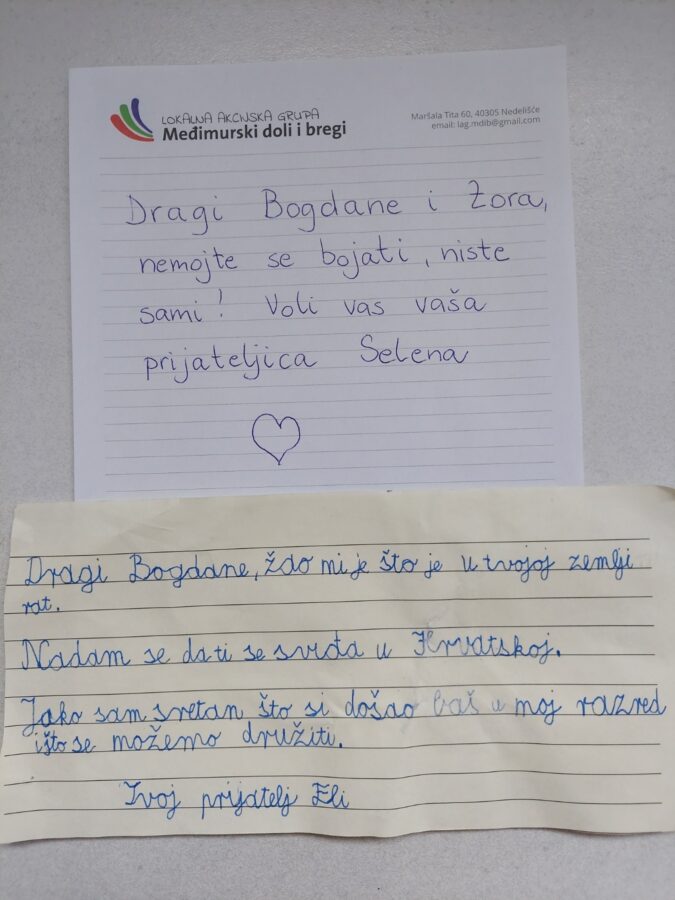 LOKALNA AKCIJSKA GRUPA
Međimurski doli i bregi
Maršala Tita 60, 40305 Nedelišće
email: lag.mdib@gmail.com
Dragi Bogdane i Zora,
nemojte se bojati, niste
sami! Voli vas vaša
prijateljica Selena
Dragi Bogdane, ždo mi je što je u tvojoj zemlji
rat.
Nadam se da ti se sviđa u Hrvatskoj.
Jako sam sretan što si došao baš u moj razred
i što se možemo družiti.
Tvoj prijatelj Eli